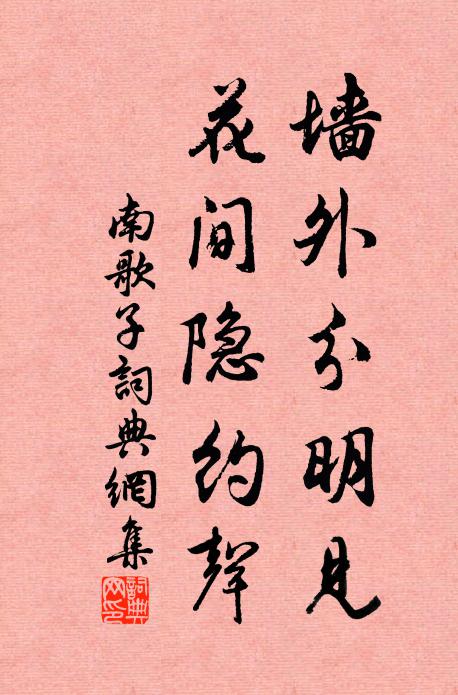 墙外分明见
花间隐约声
南歌子詞典網集
詞典
网印